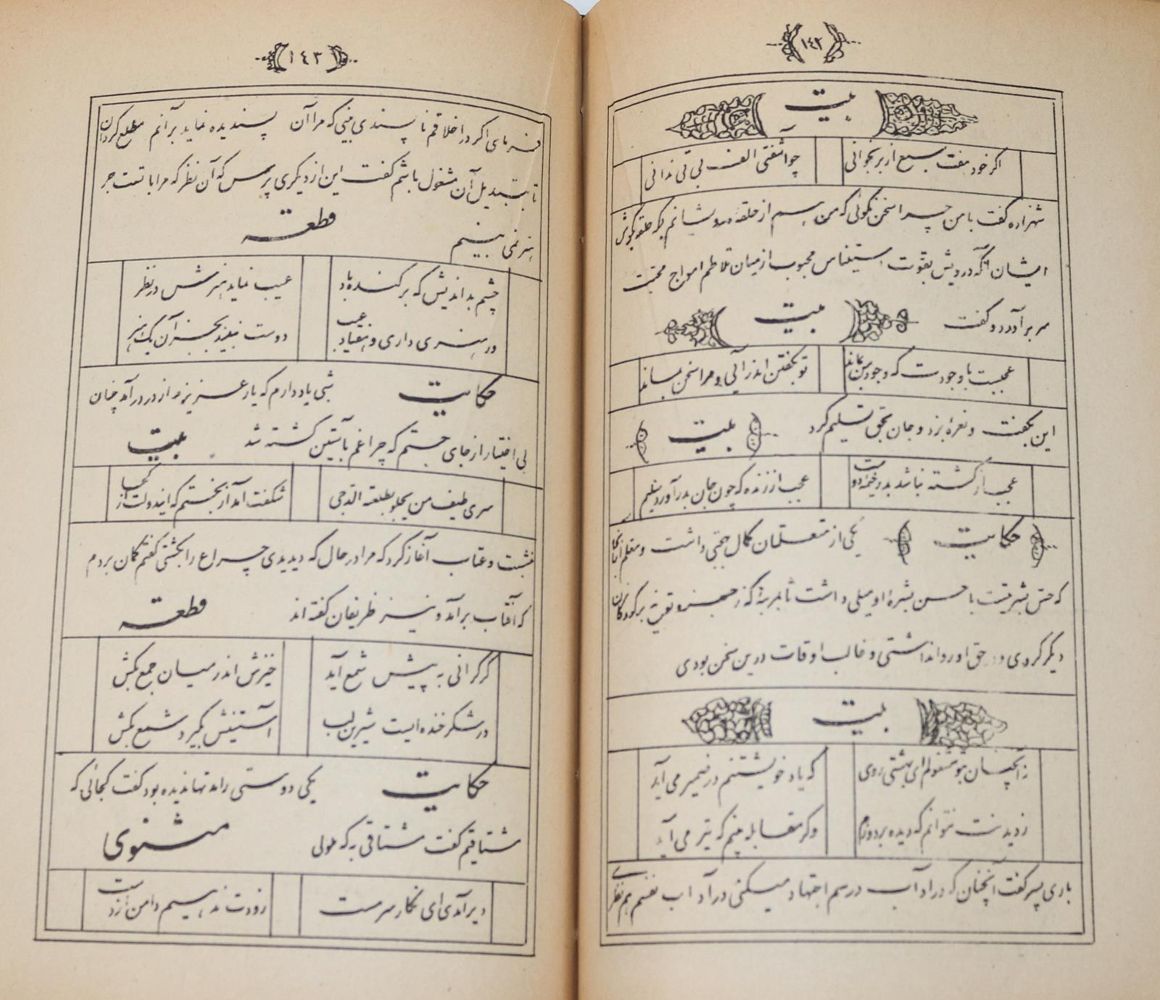 ١٤٢
بیت
اگر خود هفت سبع از بر بخوانی چو آشفتی الف بی تی ندانی
شهزاده گفت با من چرا سخن نگوئی که من هم از حلقه درویشانم بلکه حلقه بگوش
ایشان آنگه درویش بقوت استیناس محبوب از میان تلاطم امواج محبت
سر برآورد و گفت بیت
عجبست با وجودت که وجود من بماند تو بگفتن اندر آئی و مرا سخن بماند
این بگفت و نعرهٔ بزد و جان بحق تسلیم کرد بیت
عجب از کشته نباشد بدر خیمه دوست عجب از زنده که چون جان بدر آورد سلیم
حکایت یکی از متعلمان کمال بهجتی داشت و معلم آنجا
که حس بشریت با حسن بشرهٔ او میلی داشت تا بمرتبهٔ که زجر و توبیخ بر کودکان
دیگر کردی در حق او روا نداشتی و غالب اوقات درین سخن بودی
بیت
نه آنچنان بتو مشغولم ای بهشتی روی که یاد خویشتنم در ضمیر می آید
ز دیدنت نتوانم که دیده بردوزم وگر مقابله بینم که تیر می آید
باری پسر گفت آنچنان که در آداب درسم اجتهاد میکنی در آداب نفسم هم نظری
١٤٣
فرمای اگر در اخلاقم ناپسندی بینی که مرا آن پسندیده نماید بر آنم مطلع گردان
تا بتبدیل آن مشغول باشم گفت این از دیگری پرس که آن نظر که مرا با تست جز
هنر نمی بینم قطعه
چشم بداندیش که برکنده باد عیب نماید هنرش در نظر
ور هنری داری و هفتاد عیب دوست نبیند بجز آن یک هنر
حکایت شبی یاد دارم که یار عزیزم از در درآمد چنان
بی اختیار از جای جستم که چراغم بآستین کشته شد بیت
سری طیف من یجلو بطلعته الدجی شگفت آمد از بختم که این دولت از کجا
نشست و عتاب آغاز کرد که مرا در حال که دیدی چراغ را بکشتی گفتم گمان بردم
که آفتاب برآمد و نیز ظریفان گفته اند قطعه
گر گرانی به پیش شمع آید خیزش اندر میان جمع بکش
ور شکر خنده ایست شیرین لب آستینش بگیر و شمع بکش
حکایت یکی دوستی را مدتها ندیده بود گفت کجائی که
مشتاقم گفت مشتاقی به که ملولی مثنوی
دیر آمدی ای نگار سرمست زودت ندهیم دامن از دست